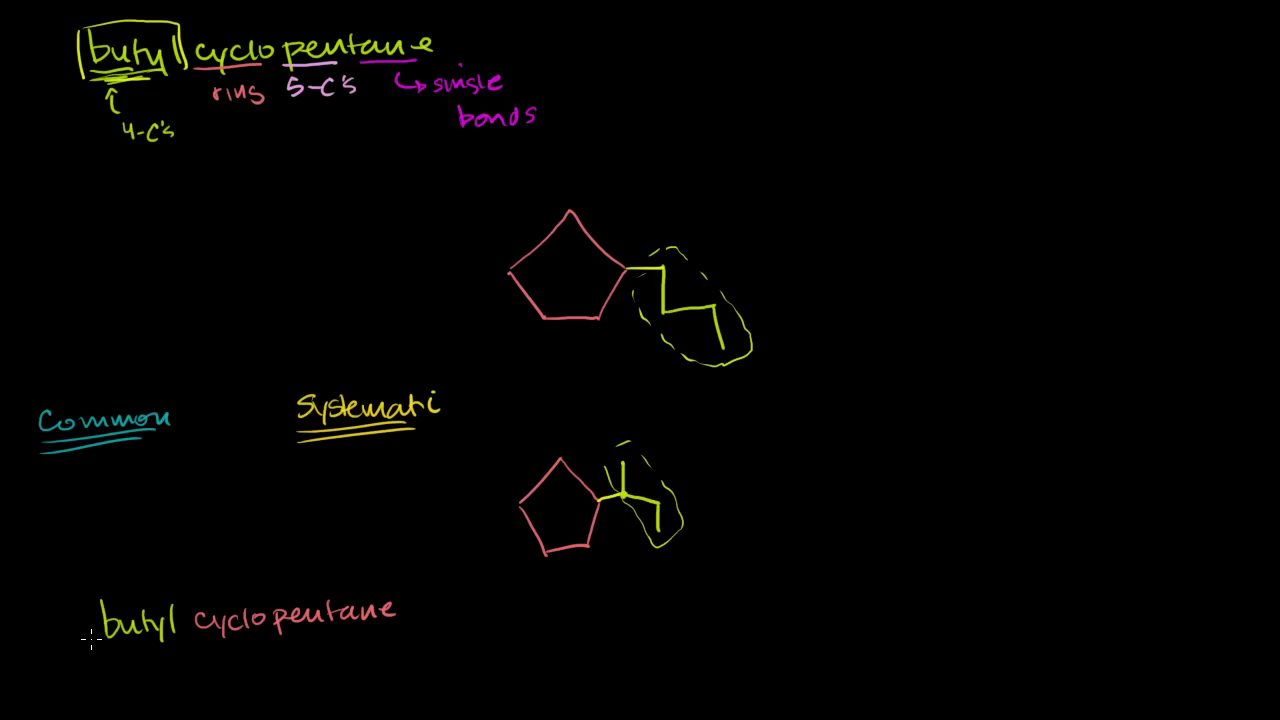 butyl cyclopentane
ring 5-C's ↳ single
bonds
4-C's
Common
Systemati
butyl cyclopentane